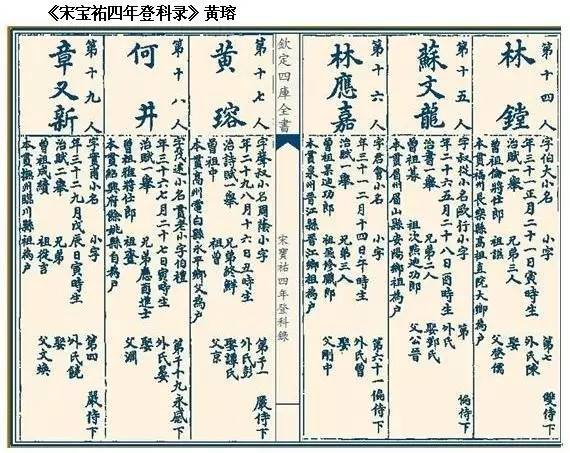 《宋宝祐四年登科录》黄瑢
第十四人
林鏜
字伯大小名 小字 第七
年三十正月二十一日寅時生 外氏陳 雙侍下
治賦一舉 兄弟三人 娶
曾祖倫將仕郎 祖謳 父登儒
本貫福州長樂縣高祖直院大卿為戶
第十五人
蘇文龍
字叔從小名歐行小字 第
年二十六五月二十八日酉時生 外氏 偏侍下
治書一舉 兄弟二人 娶鄧氏
曾祖綦 祖次熊迪功郎 父公晉
本貫眉州眉山縣安陽鄉祖為戶
第十六人
林應嘉
字君會小名 小字 第六十一
年三十一十二月十四日午時生 外氏曾 偏侍下
治賦一舉 兄弟三人 娶
曾祖杲迪功郎 祖 修職郎 父剛中
本貫泉州晉江縣晉江鄉祖為戶
欽定四庫全書
宋寶祐四年登科錄
第十七人
黃瑢
字聲叔小名周隆小字 第十一
年二十九八月十六日丑時生 外氏彭 嚴侍下
治詩賦一舉 兄弟終鮮 娶譚氏
曾祖中 祖曾 父京
本貫高州電白縣永平鄉父為戶
第十八人
何井
字茂遠小名貴老小字伯禮 第千十九
年三十六七月二十七日寅時生 外氏晏 永感下
治賦一舉 兄弟應酉進士 娶
曾祖雅將仕郎 祖登 父淵
本貫紹興府餘姚縣自為戶
第十九人
章又新
字 甫小名 小字 第四
年三十二九月戊辰日寅時生 外氏饒 嚴侍下
治賦二舉 兄弟 娶
曾祖成績 祖從言 父文煥
本貫撫州臨川縣祖為戶